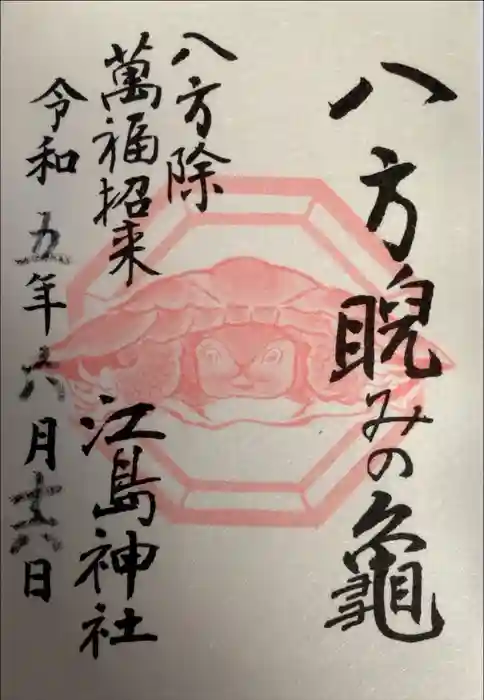 八方睨みの龜
八方除
萬福招来
江島神社
令和五年六月十六日